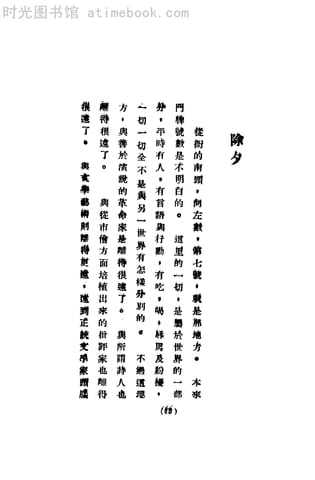 时光图书馆 atimebook.com
除夕
從街的南頭，向左數，第七號，就是那地方。本來
門牌號數是不明白的。這里的一切，是屬於世界的一部
分，平時有人，有言語與行動，有吃，喝，辱罵及紛擾，
一切一切全不是與另一世界有怎樣分別的。不過這裡
方，與善於演說的革命家是離得很遠了。與所謂詩人也
離得很遠了。與從市儈方面培植出來的批評家也離得
很遠了。與文學藝術則離得更遠，遠到正統文學家頭